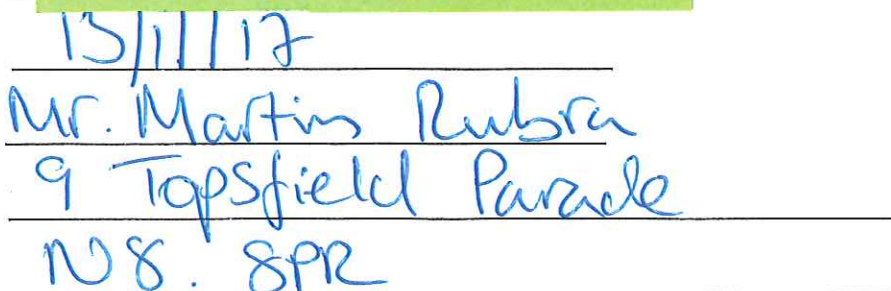 13/11/17
Mr. Martin Rubra
9 Topsfield Parade
N8. 8PR